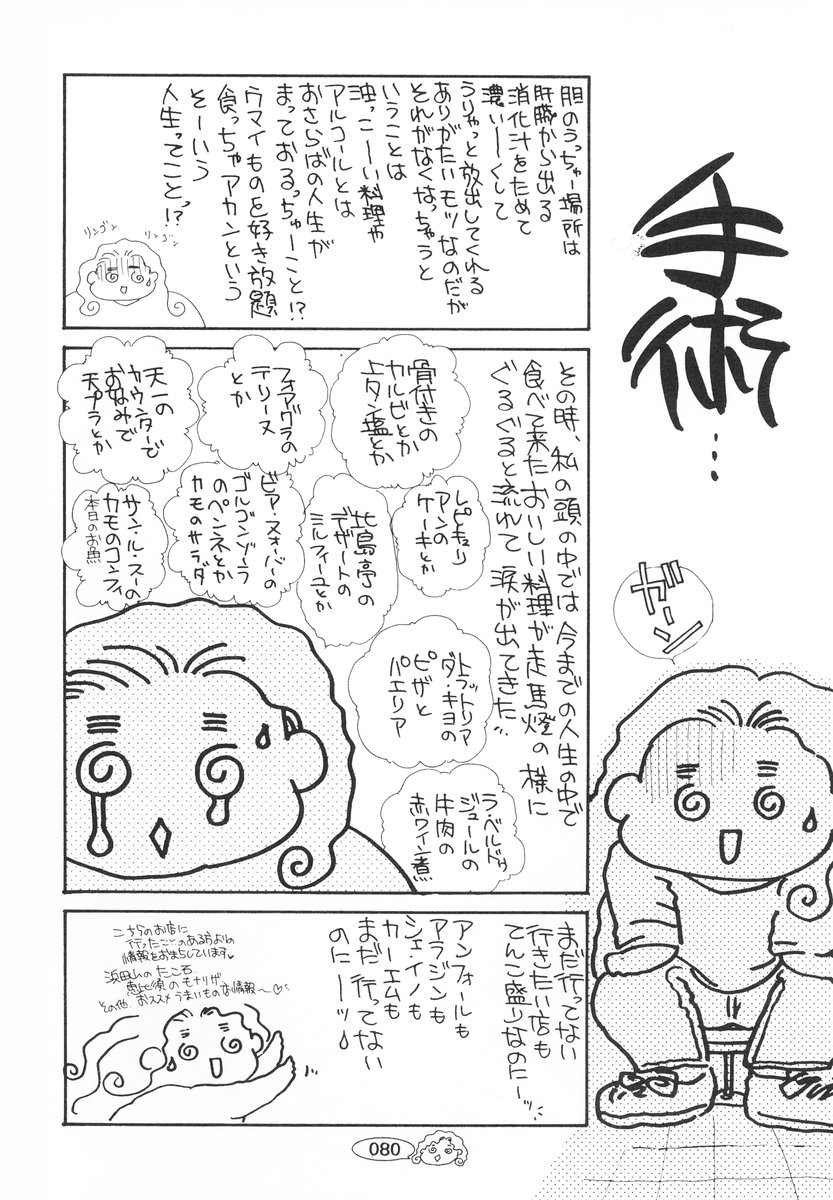 手術…
ガーン
胆のうっちゅー場所は
肝臓から出る
消化汁をためて
濃いーくして
うりゃっと放出してくれる
ありがたいモツなのだが
それがなくなっちゃうと
いうことは
油っこーい料理や
アルコールとは
おさらばの人生が
まっておるっちゅーこと!?
ウマイものを好き放題
食っちゃアカンという
そーいう
人生ってこと!?
リンゴン
リンゴン
その時、私の頭の中では今までの人生の中で
食べて来たおいしい料理が走馬燈の様に
ぐるぐると流れて涙が出てきた
骨付きの
カルビとか
上タン塩とか
フォアグラの
テリーヌ
とか
天一の
カウンターで
お好みで
天プラとか
レピキュリ
アンの
ケーキとか
比島亭の
デザートの
ミルフィーユとか
ビア・ヌォーバーの
ゴルゴンゾーラ
のペンネとか
カモのサラダ
サン・ル・スーの
カモのコンフィ
本日のお魚
トラットリア
ダ・キヨの
ピザと
パエリア
ラ・ベルドゥ
ジュールの
牛肉の
赤ワイン煮
まだ行ってない
行きたい店も
てんこ盛りなのにーッ
アンフォールも
アラジンも
シェ・イノも
カーエムも
まだ行ってない
のにーッ
こちらのお店に
行ったことのある方よりの
情報をおまちしています♥
浜田山のたこ石
恵比須のモナリザな情報〜♡
その他、おススメうまいもの
080